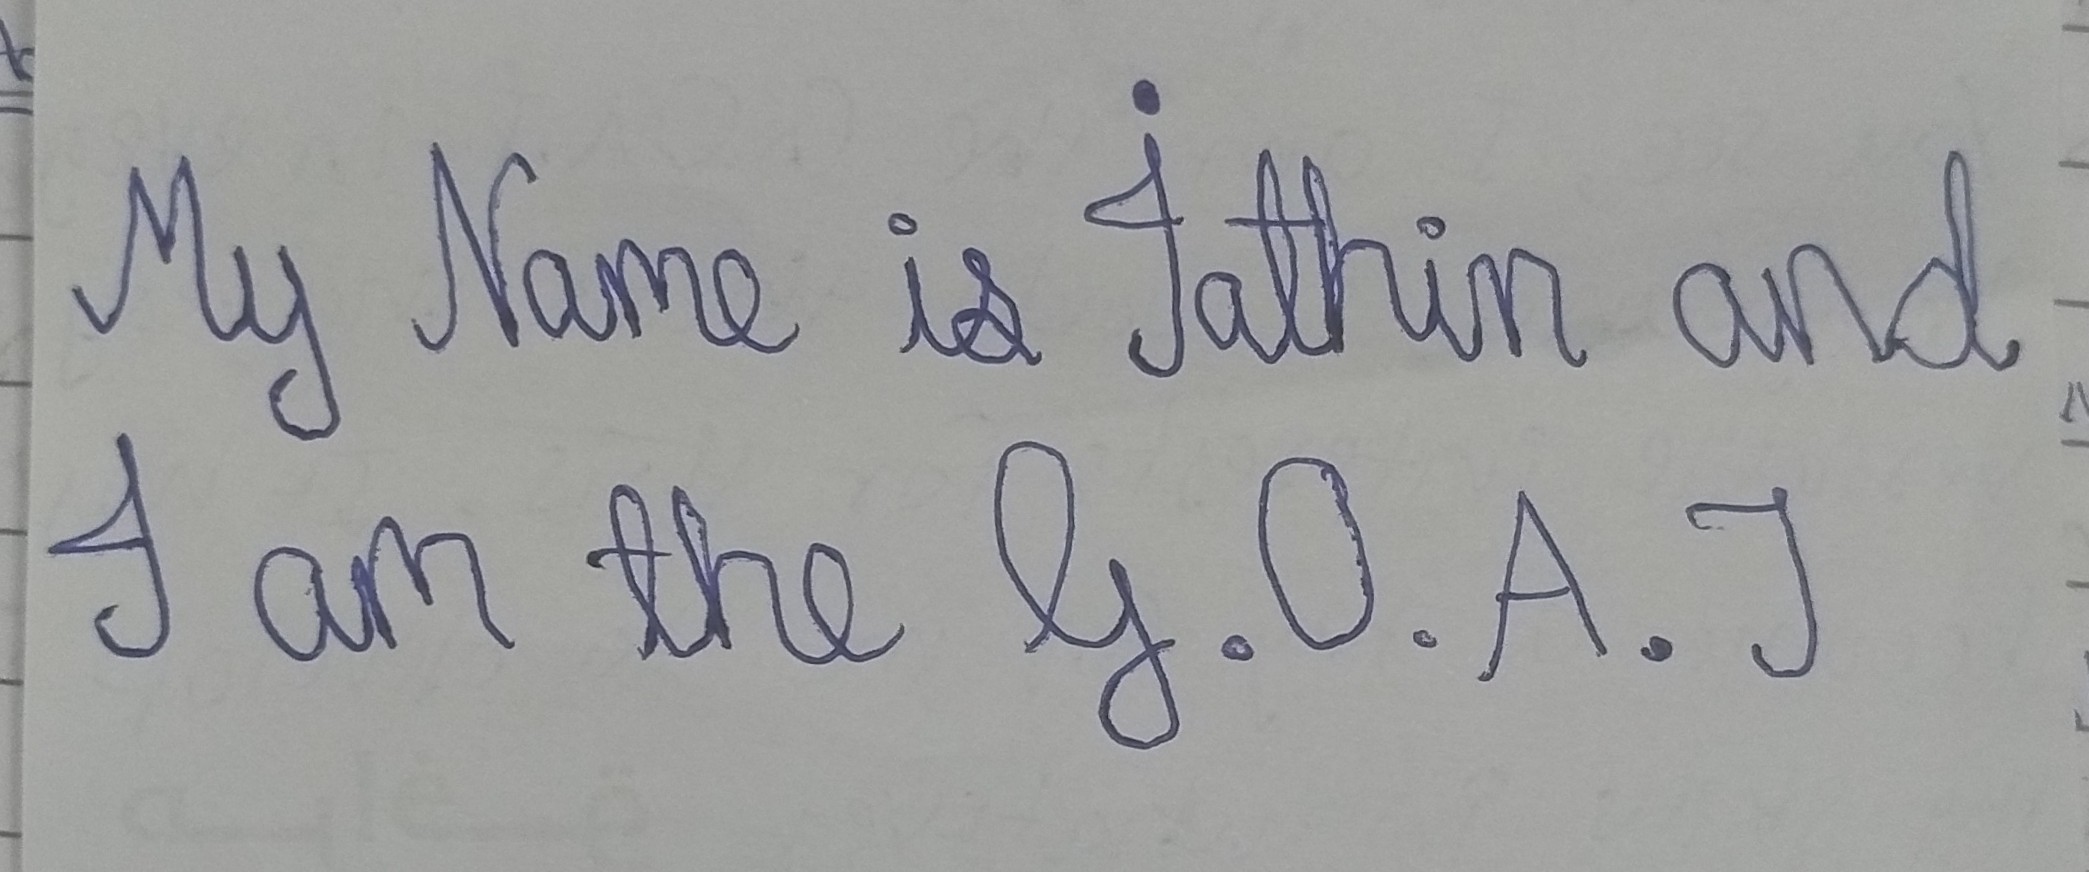 My Name is Jathin and
I am the G.O.A.T